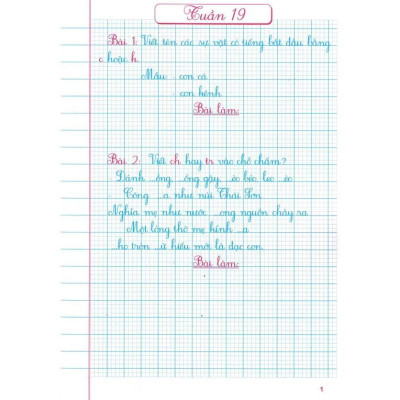 Tuần 19
Bài 1: Viết tên các sự vật có tiếng bắt đầu bằng
c hoặc h.
Mẫu: con cá
con hến
Bài làm:
Bài 2: Viết ch hay tr vào chỗ chấm?
Đánh ...ống ...ống gậy ...èo béo leo ...èo
Công ...a như núi Thái Sơn
Nghĩa mẹ như nước ...ong nguồn chảy ra
Một lòng thờ mẹ kính ...a
...ho tròn ...ữ hiếu mới là đạo con.
Bài làm:
1